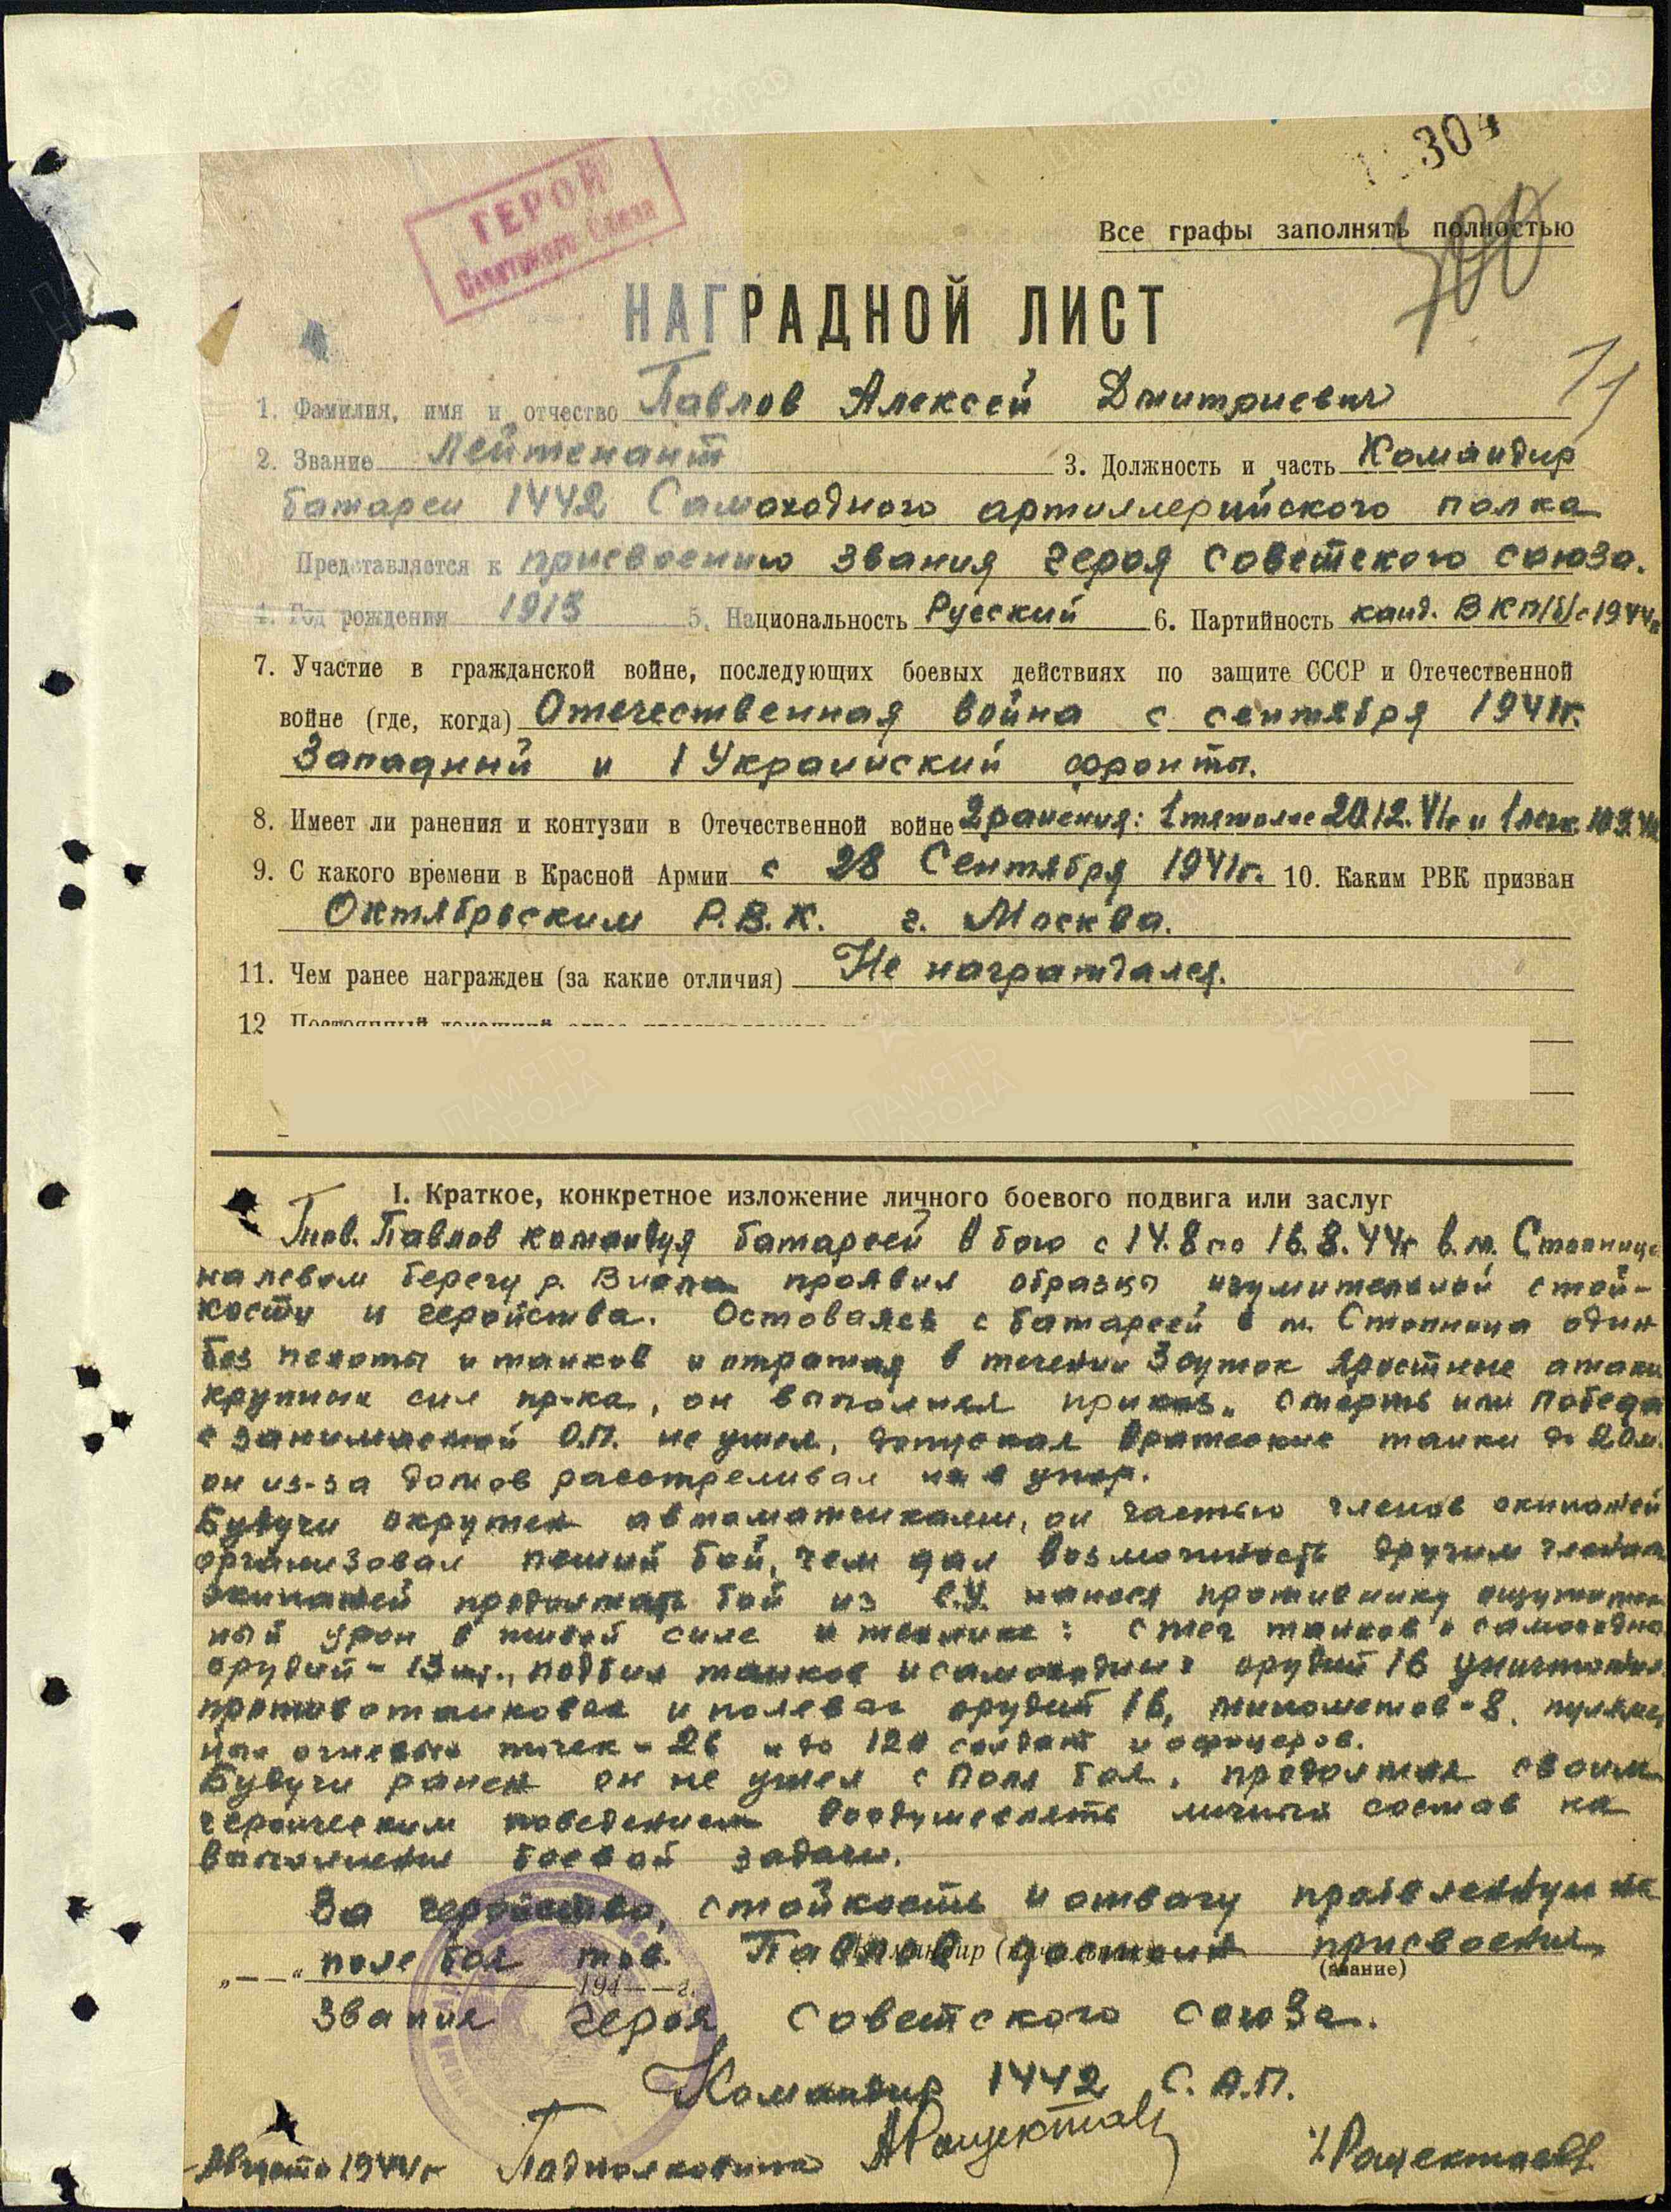 304
ГЕРОЙ
Советского Союза
Все графы заполнять полностью
700
НАГРАДНОЙ ЛИСТ
1. Фамилия, имя и отчество Павлов Алексей Дмитриевич
2. Звание Лейтенант 3. Должность и часть Командир
батареи 1442 Самоходного артиллерийского полка
Представляется к присвоению звания героя советского союза.
4. Год рождения 1913 5. Национальность Русский 6. Партийность канд. ВКП(б) с 1944г
7. Участие в гражданской войне, последующих боевых действиях по защите СССР и Отечественной
войне (где, когда) Отечественная война с сентября 1941г.
Западный и 1 Украинский фронты.
8. Имеет ли ранения и контузии в Отечественной войне 2 ранения: 1 тяжолое 20.12.41г и 1 легк.
9. С какого времени в Красной Армии с 28 Сентября 1941г. 10. Каким РВК призван
Октябрьским Р.В.К. г. Москва.
11. Чем ранее награжден (за какие отличия) Не награждался.
12
I. Краткое, конкретное изложение личного боевого подвига или заслуг
Тов. Павлов командуя батареей в бою с 14.8 по 16.8.44г в.м. Стопница
на левом берегу р. Висла проявил образцы изумительной стой-
кости и геройства. Оставаясь с батареей в м. Стопница один
без пехоты и танков и отражая в течении 3 суток яростные атаки
крупных сил пр-ка, он выполнял приказ „смерть или победа
с занимаемой О.П. не ушел, допуская вражеские танки до 20м.
он из-за домов расстреливал их в упор.
Будучи окружен автоматчиками, он частью членов экипажей
организовал пеший бой, чем дал возможность другим членам
экипажей продолжать бой из С.У. нанося противнику ощутитель
ный урон в живой силе и технике: сжег танков и самоходных
орудий - 13 шт., подбил танков и самоходных орудий 16 уничтожил
противотанковых и полевых орудий 16, минометов - 8, пулемет
ных огневых точек - 26 и до 120 солдат и офицеров.
Будучи ранен он не ушел с поля боя, продолжая своим
героическим поведением воодушевлять личный состав на
выполнение боевой задачи.
За геройство, стойкость и отвагу проявленную на
поле боя тов. Павлов достоин присвоения
„ — “ 194 г. Командир (звание)
звания героя советского союза.
Командир 1442 С.А.П.
Августа 1944г Подполковник